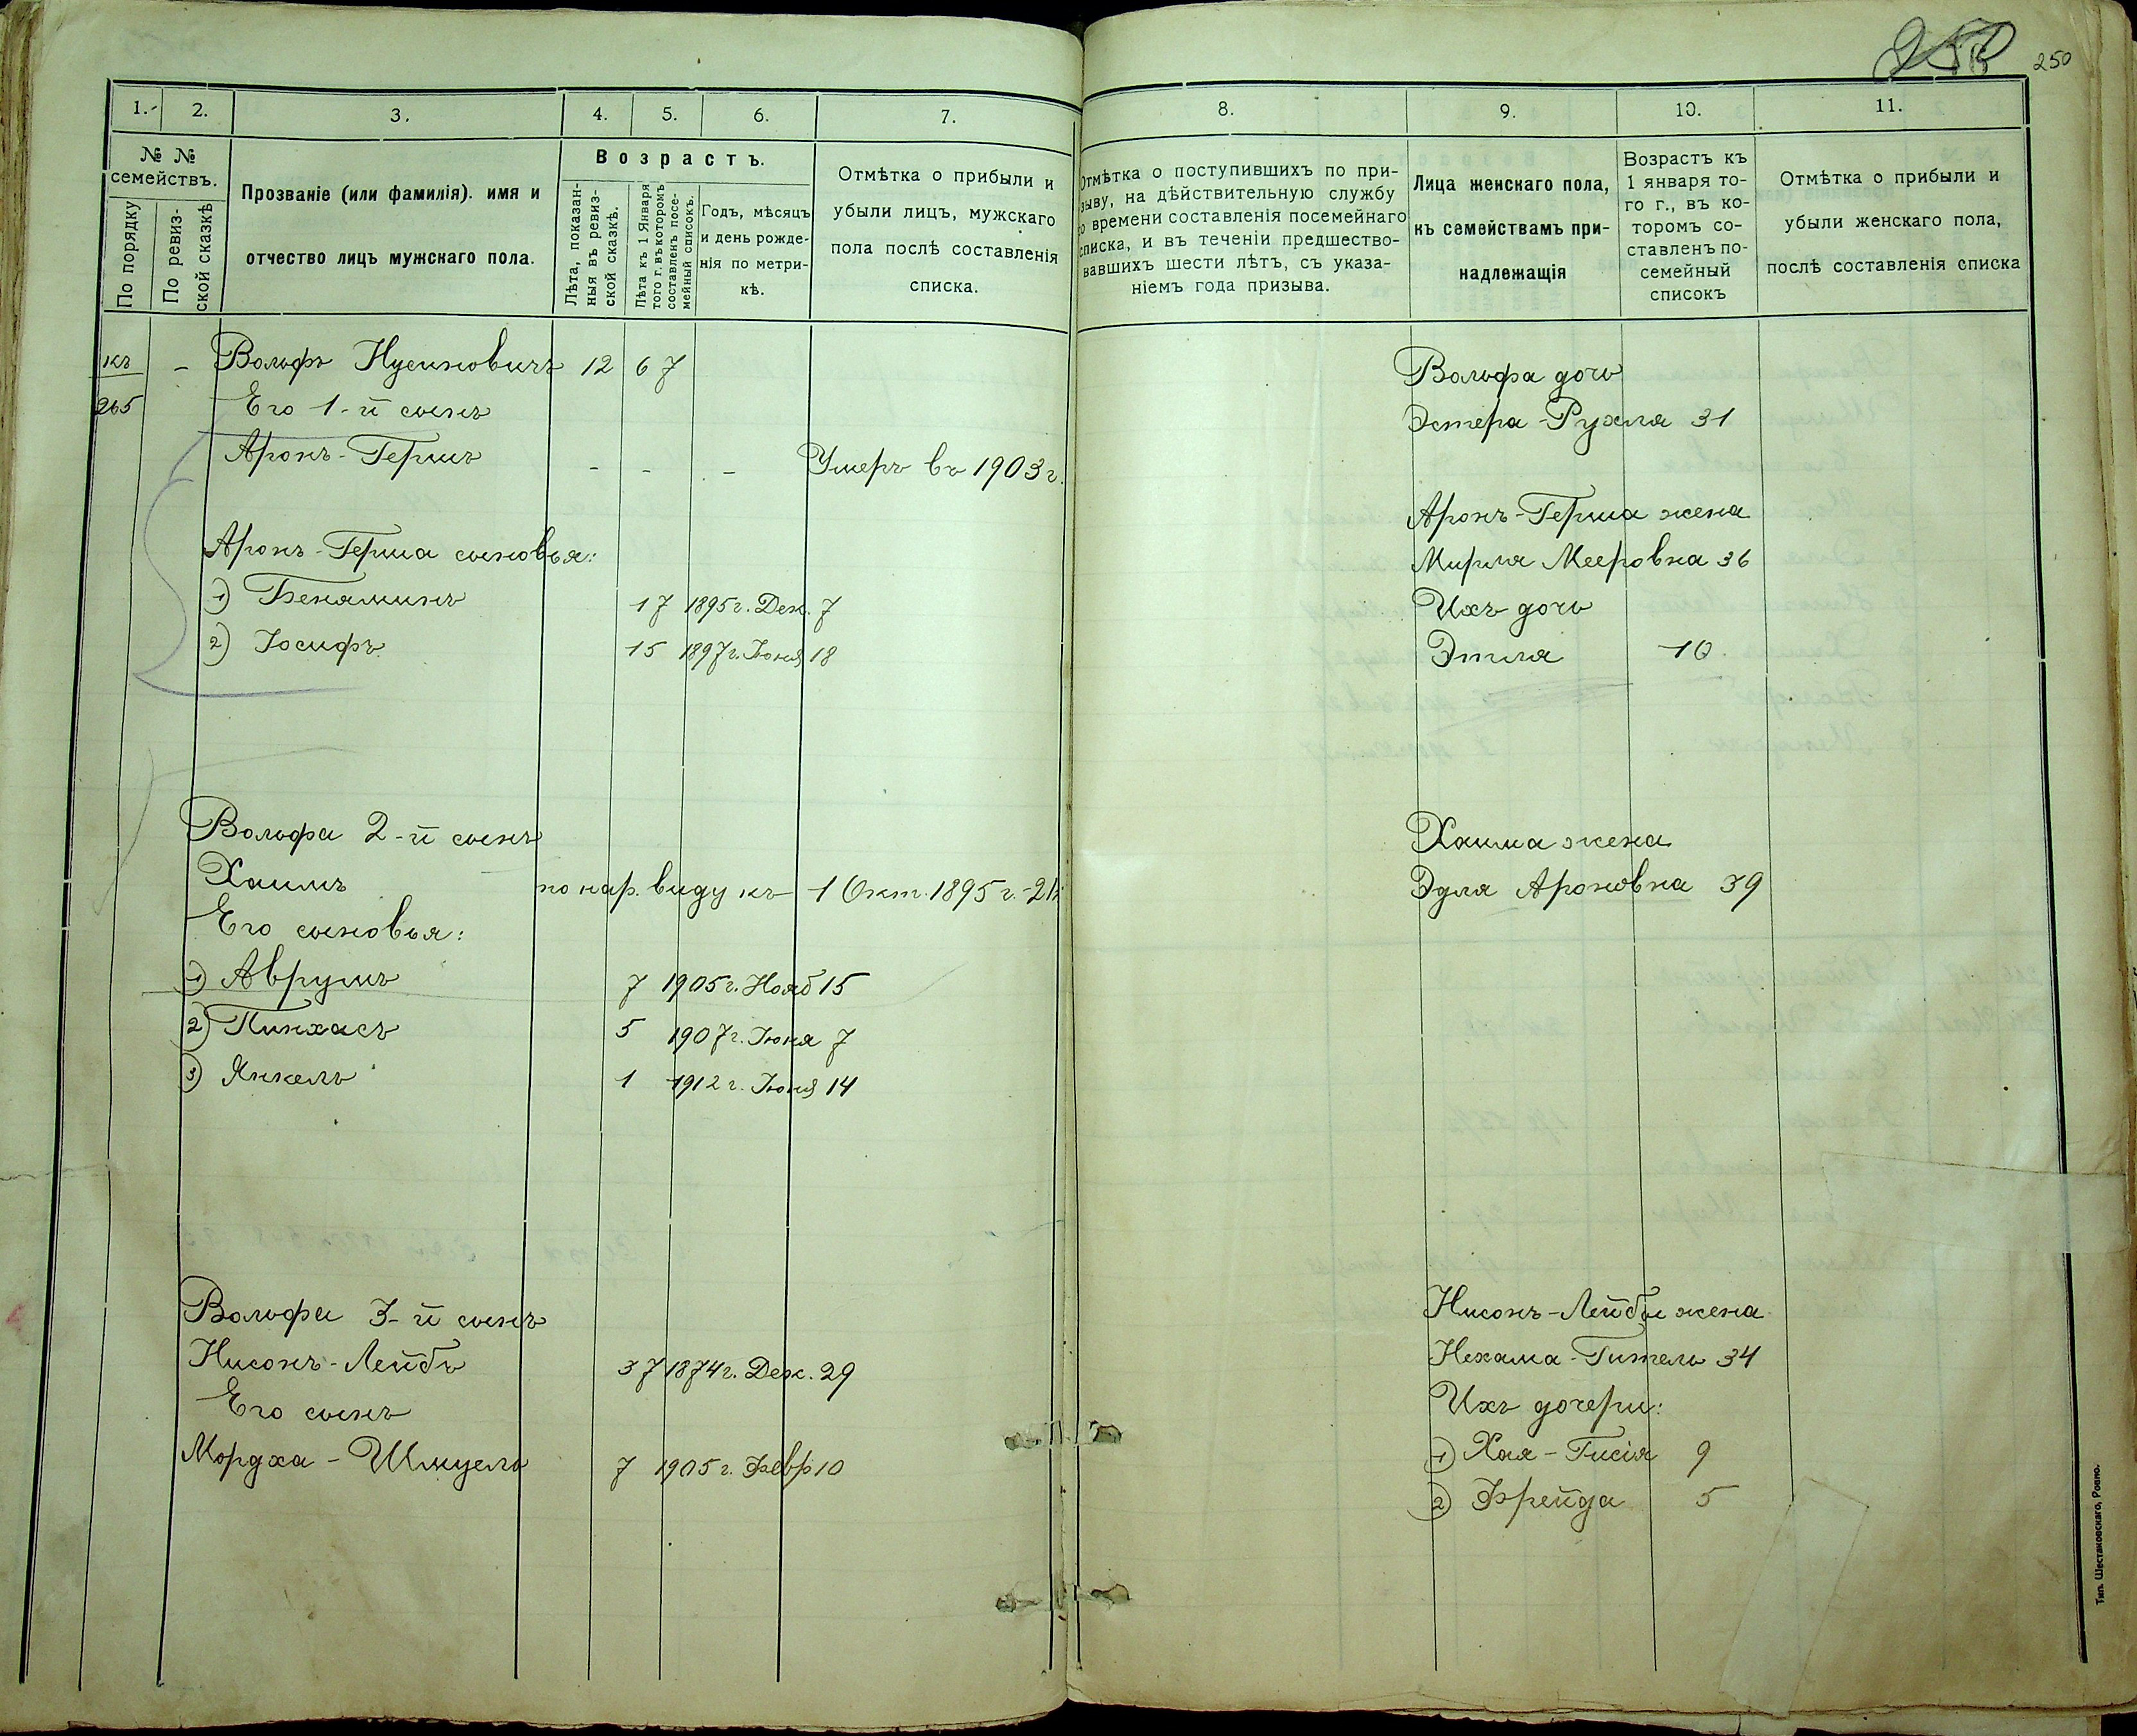 250
250
1.
2.
3.
4.
5.
6.
7.
№ №
семействъ.
По порядку
По ревиз-
ской сказкѣ
Прозваніе (или фамилія). имя и
отчество лицъ мужскаго пола.
Возрастъ.
Лѣта, показан-
ныя въ ревиз-
ской сказкѣ.
Лѣта къ 1 Января
того г. въ которомъ
составленъ посе-
мейный списокъ.
Годъ, мѣсяцъ
и день рожде-
нія по метри-
кѣ.
Отмѣтка о прибыли и
убыли лицъ, мужскаго
пола послѣ составленія
списка.
къ
265
- Вольфъ Нусиновичъ 12 67
Его 1-й сынъ
Аронъ-Гершъ - - - Умеръ въ 1903 г.
Аронъ-Герша сыновья:
1) Беняминъ 17 1895 г. Дек. 7
2) Іосифъ 15 1897 г. Іюня 18
Вольфа 2-й сынъ
Хаимъ по нар. виду къ 1 Окт. 1895 г.
Его сыновья:
1) Аврумъ 7 1905 г. Нояб 15
2) Пинхасъ 5 1907 г. Іюня 7
3) Янкель 1 1912 г. Іюня 14
Вольфа 3-й сынъ
Нисонъ-Лейбъ 37 1874 г. Дек. 29
Его сынъ
Мордха-Шмуель 7 1905 г. Февр 10
8.
9.
10.
11.
Отмѣтка о поступившихъ по при-
зыву, на дѣйствительную службу
со времени составленія посемейнаго
списка, и въ теченіи предшество-
вавшихъ шести лѣтъ, съ указа-
ніемъ года призыва.
Лица женскаго пола,
къ семействамъ при-
надлежащія
Возрастъ къ
1 января то-
го г., въ ко-
торомъ со-
ставленъ по-
семейный
списокъ
Отмѣтка о прибыли и
убыли женскаго пола,
послѣ составленія списка
Вольфа дочь
Эстера-Рухля 31
Аронъ-Герша жена
Мирля Мееровна 36
Ихъ дочь
Этля 10
Хаима жена
Эдля Ароновна 39
Нисонъ-Лейбы жена
Нехама-Гитель 34
Ихъ дочери:
1) Хая-Гисія 9
2) Фрейда 5
Тип. Шестаковскаго, Ровно.